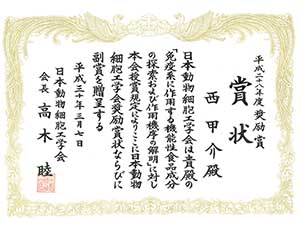 平成二八年度奨励賞
賞状
西甲介殿
日本動物細胞工学会は貴殿の
「免疫系に作用する機能性食品成分
の探索および作用機序の解明」に対し
本会授賞規定によりここに日本動物
細胞工学会奨励賞状ならびに
副賞を贈呈する
平成三十年三月七日
日本動物細胞工学会
会長 高木睦